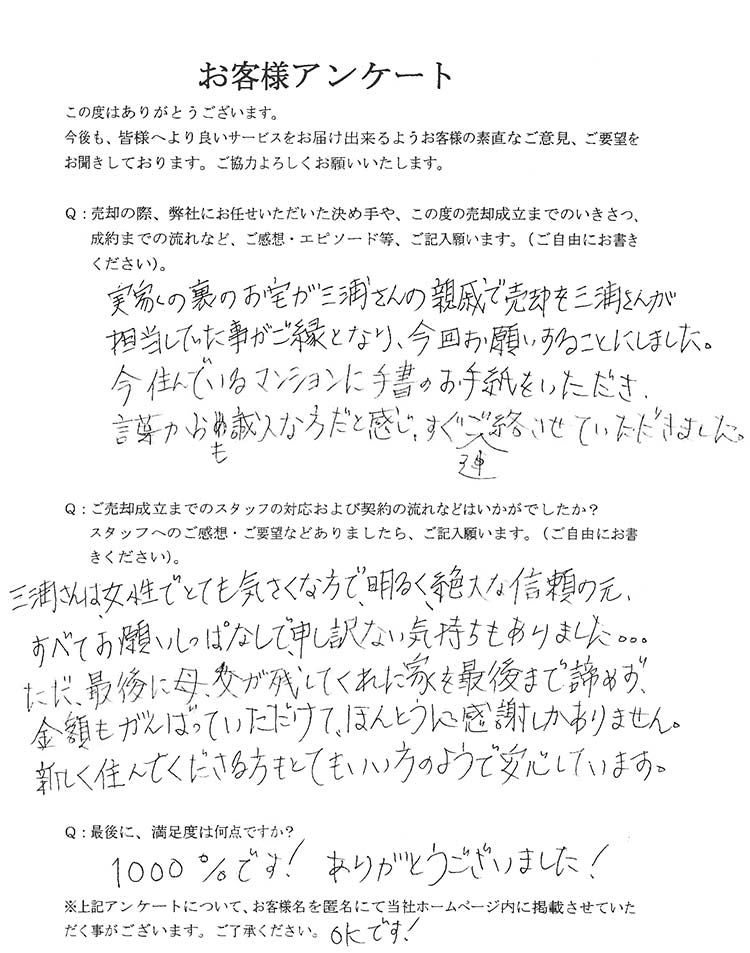 お客様アンケート
この度はありがとうございます。
今後も、皆様へより良いサービスをお届け出来るようお客様の素直なご意見、ご要望を
お聞きしております。ご協力よろしくお願いいたします。
Q：売却の際、弊社にお任せいただいた決め手や、この度の売却成立までのいきさつ、
成約までの流れなど、ご感想・エピソード等、ご記入願います。（ご自由にお書き
ください）。
実家の裏のお宅が三浦さんの親戚で売却を三浦さんが
担当していた事がご縁となり、今回お願いすることにしました。
今住んでいるマンションに手書のお手紙をいただき、
言葉からも誠実な方だと感じ、すぐご連絡させていただきました。
Q：ご売却成立までのスタッフの対応および契約の流れなどはいかがでしたか？
スタッフへのご感想・ご要望などありましたら、ご記入願います。（ご自由にお書
きください）。
三浦さんは、女性でとても気さくな方で、明るく、絶大な信頼の元、
すべてお願いしっぱなしで、申し訳ない気持ちもありました…
ただ、最後に母、父が残してくれた家を最後まで諦めず、
金額もがんばっていただけて、ほんとうに感謝しかありません。
新しく住んでくださる方もとてもいい方のようで安心しています。
Q：最後に、満足度は何点ですか？
1000%です！ ありがとうございました！
※上記アンケートについて、お客様名を匿名にて当社ホームページ内に掲載させていた
だく事がございます。ご了承ください。 OKです！